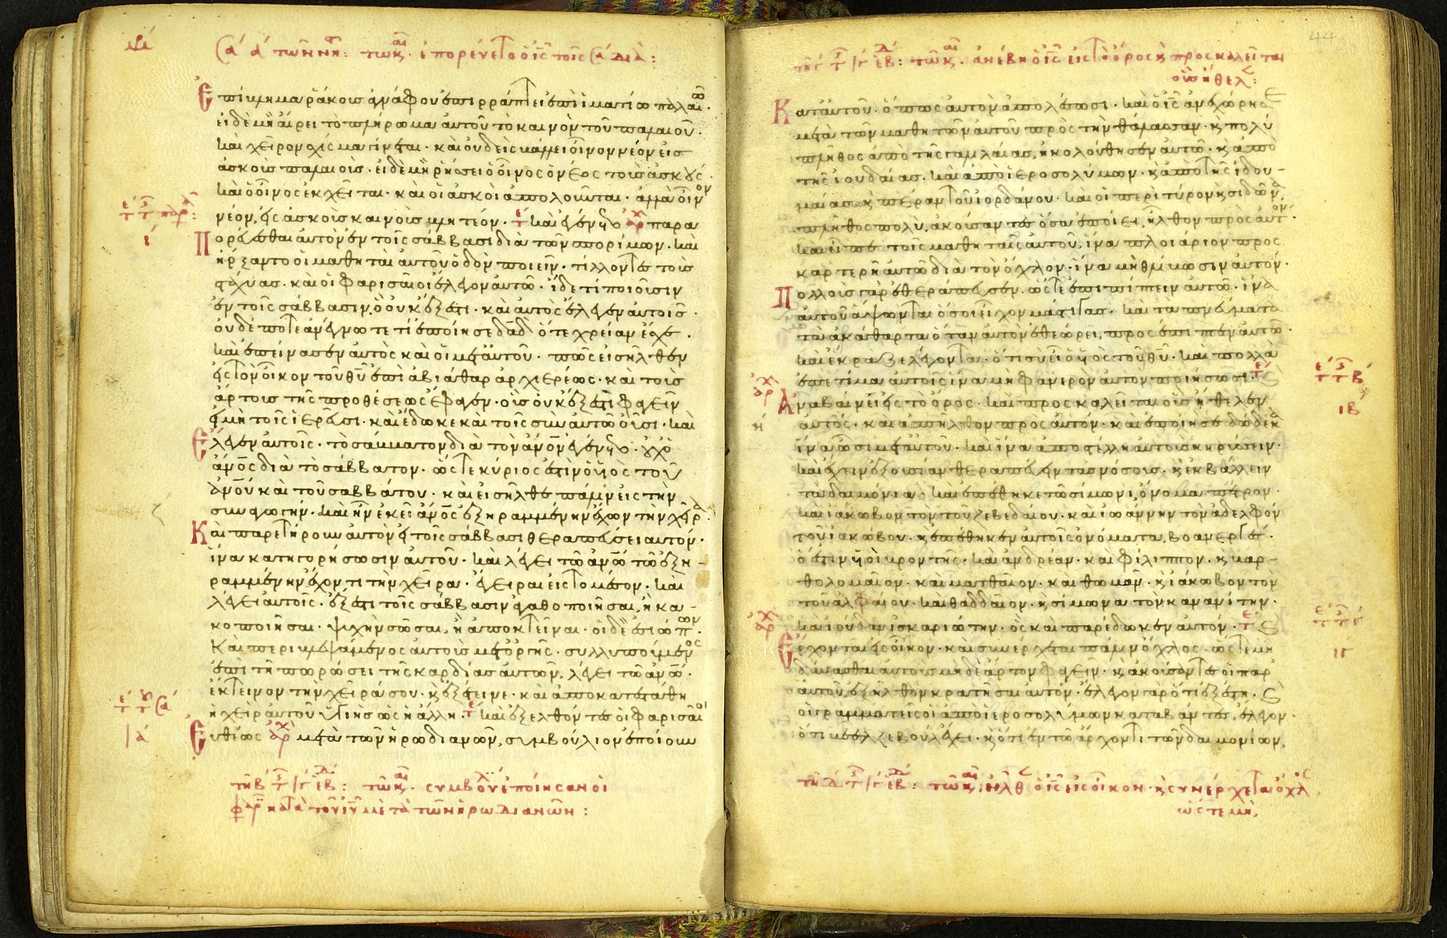 Σα α΄ τῶν νη: τῷ κ. ἐπορεύετο ὁ ἰς τοῖς Σα διὰ:
Ἐπίβλημα ῥάκους ἀγνάφου ἐπιρράπτει ἐπὶ ἱματίω παλαιῶ.
εἰ δὲ μὴ αἴρει τὸ πλήρωμα αὐτοῦ τὸ καινὸν τοῦ παλαιοῦ.
καὶ χεῖρον σχίσμα γίνεται. καὶ οὐδεὶς βάλλει οἶνον νέον εἰς
ἀσκοὺς παλαιούς. εἰ δὲ μὴ ῥήσσει ὁ οἶνος ὁ νέος τοὺς ἀσκούς.
καὶ ὁ οἶνος ἐκχεῖται. καὶ οἱ ἀσκοὶ ἀπολοῦνται. ἀλλὰ οἶνον
νέον, εἰς ἀσκοὺς καινοὺς βλητέον. καὶ ἐγένετο παρα
πορεύεσθαι αὐτὸν ἐν τοῖς σάββασι διὰ τῶν σπορίμων. καὶ
ἤρξαντο οἱ μαθηταὶ αὐτοῦ ὁδὸν ποιεῖν. τίλλοντες τοὺς
στάχυας. καὶ οἱ φαρισαῖοι ἔλεγον αὐτῶ. ἴδε τί ποιοῦσιν
ἐν τοῖς σάββασιν, ὃ οὐκ ἔξεστι. καὶ αὐτὸς ἔλεγεν αὐτοῖς.
οὐδέποτε ἀνέγνωτε τί ἐποίησε δαδ ὅτε χρείαν ἔσχε.
καὶ ἐπείνασεν αὐτὸς καὶ οἱ μετ αὐτοῦ. πῶς εἰσῆλθεν
εἰς τὸν οἶκον τοῦ θυ ἐπὶ ἀβιάθαρ ἀρχιερέως. καὶ τοὺς
ἄρτους τῆς προθέσεως ἔφαγεν. οὓς οὐκ ἔξεστι φαγεῖν
εἰ μὴ τοῖς ἱερεῦσι. καὶ ἔδωκε καὶ τοῖς σὺν αὐτῶ οὖσι. καὶ
Ἔλεγεν αὐτοῖς. τὸ σάββατον διὰ τὸν ἄνον ἐγένετο. οὐχ ὁ
ἄνος διὰ τὸ σάββατον. ὥστε κύριός ἐστιν ὁ υἱος τοῦ
ἀνου καὶ τοῦ σαββάτου. καὶ εἰσῆλθε πάλιν εἰς τὴν
συναγωγήν. καὶ ἦν ἐκεῖ ἄνος ἐξηραμμένην ἔχων τὴν χεῖρα.
Καὶ παρετήρουν αὐτὸν εἰ τοῖς σάββασι θεραπεύσει αὐτόν.
ἵνα κατηγορήσωσιν αὐτοῦ. καὶ λέγει τῶ ἀνω τῶ ἐξη-
ραμμένην ἔχοντι τὴν χεῖρα. ἔγειραι εἰς τὸ μέσον. καὶ
λέγει αὐτοῖς. ἔξεστι τοῖς σάββασιν ἀγαθοποιῆσαι, ἢ κα-
κοποιῆσαι. ψυχὴν σῶσαι, ἢ ἀποκτεῖναι. οἱ δὲ ἐσιώπων.
Καὶ περιβλεψάμενος αὐτοὺς μετ ὀργῆς. συλλυπούμενος
ἐπὶ τῆ πωρώσει τῆς καρδίας αὐτῶν, λέγει τῶ ἀνω.
ἔκτεινον τὴν χεῖρά σου. κ ἐξέτεινε. καὶ ἀποκατεστάθη
ἡ χεὶρ αὐτοῦ ὑγιὴς ὡς ἡ ἄλλη. καὶ ἐξελθόντες οἱ φαρισαῖοι
Εὐθέως μετὰ τῶν ἡρωδιανῶν, συμβούλιον ἐποίουν
τῆ β τ ἐβ: τῷ κ. συμβουλ ἐποίησαν οἱ
φαρ κατὰ τοῦ ἰυ μετὰ τῶν ἡρωδιανῶν:
τῷ κ. ἀνέβη ὁ ἰς εἰς τὸ ὄρος κ προσκαλεῖται
οὓς ἤθελ:
Κατ αὐτοῦ. ὅπως αὐτὸν ἀπολέσωσι. καὶ ὁ ἰς ἀνεχώρησε
μετὰ τῶν μαθητῶν αὐτοῦ πρὸς τὴν θάλασσαν. κ πολὺ
πλῆθος ἀπὸ τῆς γαλιλαίας, ἠκολούθησεν αὐτῶ. κ ἀπὸ
τῆς ἰουδαίας. καὶ ἀπὸ ἱεροσολύμων. κ ἀπὸ τῆς ἰδου-
μαίας. κ πέραν τοῦ ἰορδάνου. καὶ οἱ περὶ τύρον κ σιδῶνα
πλῆθος πολύ, ἀκούσαντες ὅσα ἐποίει, ἦλθον πρὸς αὐτόν.
καὶ εἶπε τοῖς μαθηταῖς αὐτοῦ, ἵνα πλοιάριον προσ
καρτερῆ αὐτῶ διὰ τὸν ὄχλον. ἵνα μὴ θλίβωσιν αὐτόν.
Πολλοὺς γὰρ ἐθεράπευσεν. ὥστε ἐπιπίπτειν αὐτῶ. ἵνα
αὐτοῦ ἅψωνται ὅσοι εἶχον μάστιγας. καὶ τὰ πνεύματα
τὰ ἀκάθαρτα ὅταν αὐτὸν ἐθεώρει, προσέπιπτεν αὐτῶ.
καὶ ἔκραζε λέγοντα. ὅτι σὺ εἶ ὁ υἱος τοῦ θυ. καὶ πολλὰ
ἐπετίμα αὐτοῖς ἵνα μὴ φανερὸν αὐτὸν ποιήσωσι.
Ἀναβαίνει εἰς τὸ ὄρος. καὶ προσκαλεῖται οὓς ἤθελεν
αὐτός. καὶ ἀπῆλθον πρὸς αὐτόν. καὶ ἐποίησε δώδεκα
ἵνα ὦσι μετ αὐτοῦ. καὶ ἵνα ἀποστέλλη αὐτοὺς κηρύσσειν.
καὶ ἔχειν ἐξουσίαν θεραπεύειν τὰς νόσους. κ ἐκβάλλειν
τὰ δαιμόνια. καὶ ἐπέθηκε τῶ σίμωνι, ὄνομα πέτρον.
καὶ ἰάκωβον τὸν τοῦ ζεβεδαίου. καὶ ἰωάννην τὸν ἀδελφὸν
τοῦ ἰακώβου. κ ἐπέθηκεν αὐτοῖς ὀνόματα, βοανεργές.
ὅ ἐστιν υἱοὶ βροντῆς. καὶ ἀνδρέαν. καὶ φίλιππον. κ βαρ-
θολομαῖον. καὶ ματθαῖον. καὶ θωμᾶν. κ ἰάκωβον τὸν
τοῦ ἀλφαίου. καὶ θαδδαῖον. κ σίμωνα τὸν κανανίτην.
καὶ ἰούδαν ἰσκαριώτην. ὃς καὶ παρέδωκεν αὐτόν.
Ἔρχονται εἰς οἶκον. καὶ συνέρχεται πάλιν ὄχλος. ὥστε μὴ
δύνασθαι αὐτοὺς μηδὲ ἄρτον φαγεῖν. κ ἀκούσαντες οἱ παρ
αὐτοῦ ἐξῆλθον κρατῆσαι αὐτόν. ἔλεγον γὰρ ὅτι ἐξέστη.
οἱ γραμματεῖς οἱ ἀπὸ ἱεροσολύμων καταβάντες, ἔλεγον.
ὅτι βεελζεβοὺλ ἔχει. κ ὅτι ἐν τῶ ἄρχοντι τῶν δαιμονίων,
τῷ κ. ἦλθ ὁ ἰς εἰς οἶκον. κ συνέρχεται ὄχλ
ὥστε μὴ,